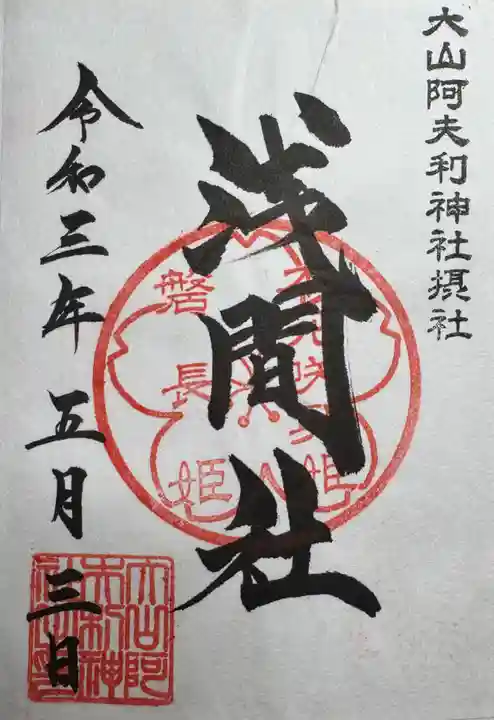 大山阿夫利神社摂社
浅間社
木花咲耶姫
磐長姫
令和三年五月三日
大山阿
夫利神